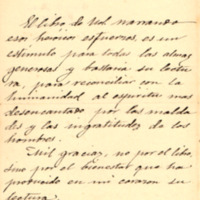 El libro de Vd. narrando
esos heróicos esfuerzos, es un
estímulo para todas las almas
generosas y bastaría su lectu-
ra, para reconciliar con la
humanidad al espíritu mas
desencantado por las malda-
des y las ingratitudes de los
hombres.
Mil gracias, no por el libro,
sino por el bienestar que ha
producido en mi corazon su
lectura.